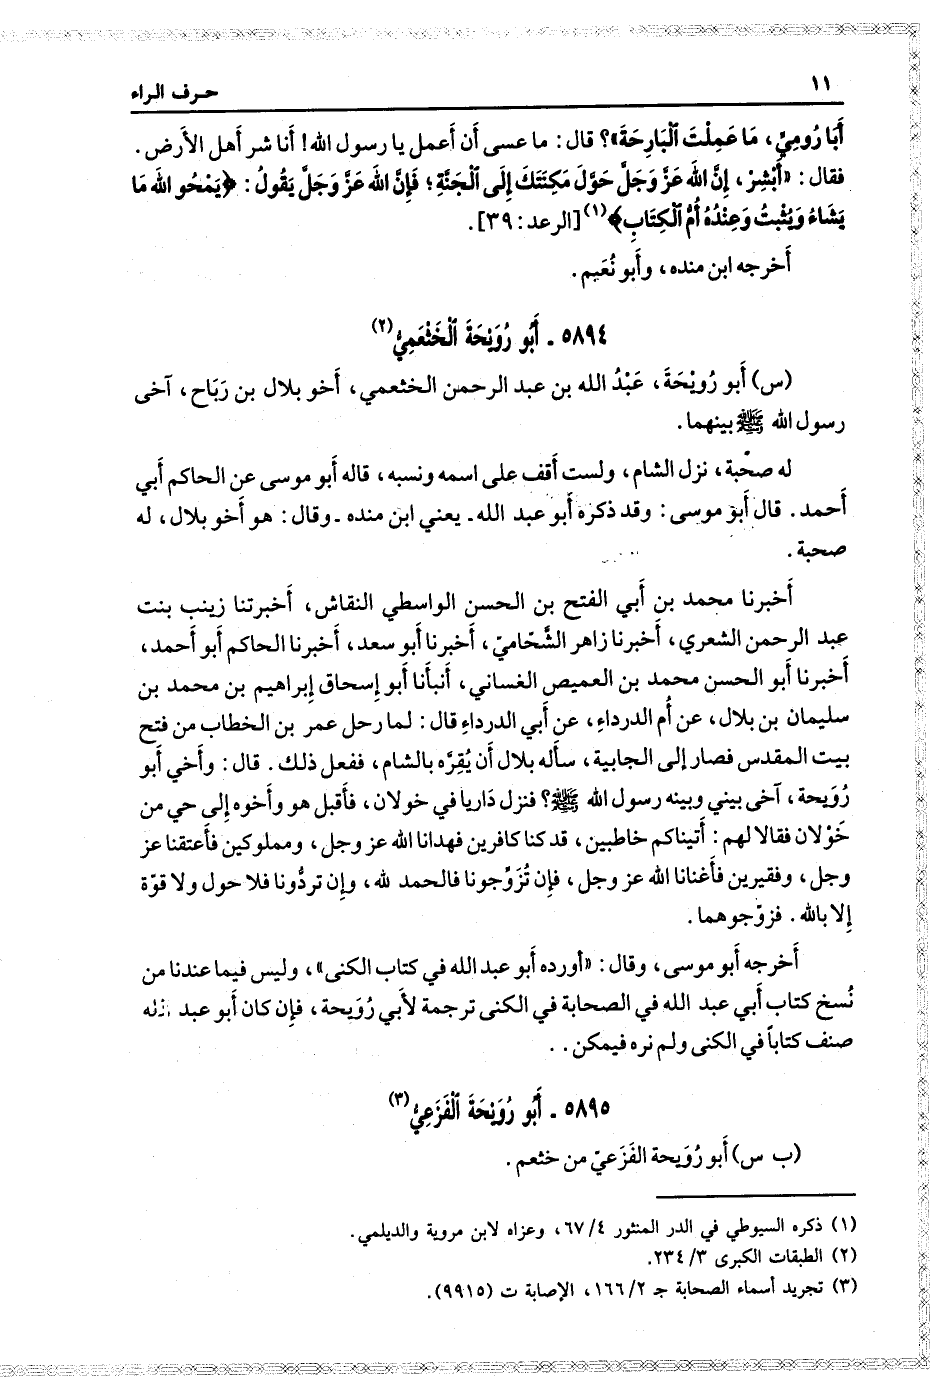 ١١
حرف الراء
أَبَا رُومِيٍّ، مَا عَمِلْتَ ٱلْبَارِحَةَ»؟ قال: ما عسى أن أعمل يا رسول الله! أنا شر أهل الأرض.
فقال: «أَبْشِرْ، إِنَّ اللهَ عَزَّ وَجَلَّ حَوَّلَ مَكِتَتَكَ إِلَى ٱلْجَنَّةِ؛ فَإِنَّ اللهَ عَزَّ وَجَلَّ يَقُولُ: ﴿يَمْحُو اللهُ مَا
يَشَاءُ وَيُثْبِتُ وَعِنْدَهُ أُمُّ ٱلْكِتَابِ﴾(١) [الرعد: ٣٩].
أخرجه ابن منده، وأبو نُعَيم.
٥٨٩٤ ـ أَبُو رُوَيْحَةَ ٱلْخَثْعَمِيُّ(٢)
(س) أَبو رُوَيْحَةَ، عَبْدُ الله بن عبد الرحمن الخثعمي، أَخو بلال بن رَبَاح، آخى
رسول الله ﷺ بينهما.
له صحْبة، نزل الشام، ولست أَقف على اسمه ونسبه، قاله أَبو موسى عن الحاكم أَبي
أَحمد. قال أَبو موسى: وقد ذكره أَبو عبد الله ـ يعني ابن منده ـ وقال: هو أَخو بلال، له
صحبة.
أَخبرنا محمد بن أَبي الفتح بن الحسن الواسطي النقاش، أَخبرتنا زينب بنت
عبد الرحمن الشعري، أَخبرنا زاهر الشَّحّاميّ، أَخبرنا أَبو سعد، أَخبرنا الحاكم أَبو أَحمد،
أَخبرنا أَبو الحسن محمد بن العميص الغساني، أَنبأَنا أَبو إِسحاق إِبراهيم بن محمد بن
سليمان بن بلال، عن أُم الدرداءِ، عن أَبي الدرداءِ قال: لما رحل عمر بن الخطاب من فتح
بيت المقدس فصار إلى الجابية، سأَله بلال أَن يُقِرَّه بالشام، ففعل ذلك. قال: وأَخي أَبو
رُوَيحة، آخى بيني وبينه رسول الله ﷺ؟ فنزل دَاريا في خولان، فأَقبل هو وأَخوه إِلى حي من
خَوْلان فقالا لهم: أَتيناكم خاطبين، قد كنا كافرين فهدانا الله عز وجل، ومملوكين فأَعتقنا عز
وجل، وفقيرين فأَغنانا الله عز وجل، فإِن تُزَوِّجونا فالحمد لله، وإِن تردُّونا فلا حول ولا قوّة
إِلا بالله. فزوّجوهما.
أَخرجه أَبو موسى، وقال: «أورده أبو عبد الله في كتاب الكنى»، وليس فيما عندنا من
نُسخ كتاب أَبي عبد الله في الصحابة في الكنى ترجمة لأَبي رُوَيحة، فإِن كان أَبو عبد الله
صنف كتاباً في الكنى ولم نره فيمكن. .
٥٨٩٥ ـ أَبُو رُوَيْحَةَ ٱلْفَزَعِيُّ(٣)
(ب س) أَبو رُوَيحة الفَزَعيّ من خثعم.
(١) ذكره السيوطي في الدر المنثور ٤/ ٦٧، وعزاه لابن مروية والديلمي.
(٢) الطبقات الكبرى ٣/ ٢٣٤.
(٣) تجريد أسماء الصحابة جـ ٢/ ١٦٦، الإصابة ت (٩٩١٥).